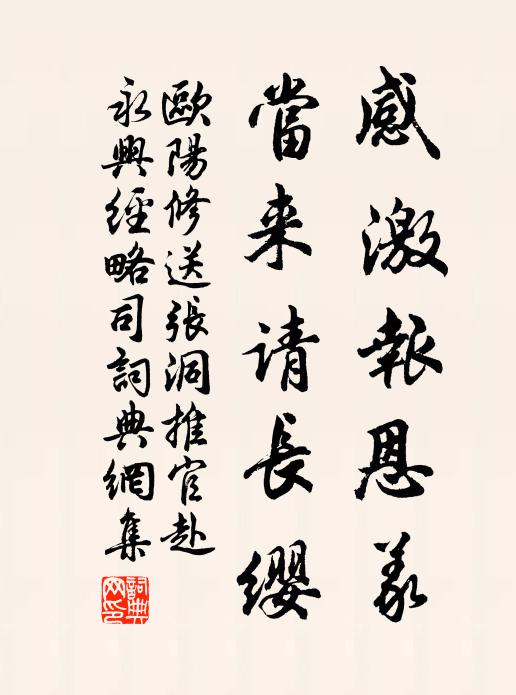 感激報恩義
當来请長纓
歐陽修送張洞推官赴
永興經略司詞典網集
詞典
网印